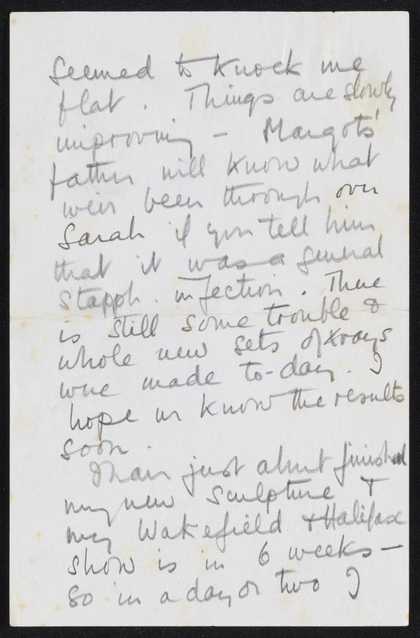 Seemed to knock me
flat. Things are slowly
improving – Margots'
father will know what
weiv been through over
Sarah if you tell him
that it was a general
Stapph. infection. There
is still some trouble &
whole new sets of Xrays
were made to-day. I
hope we know the results
soon.
I have just about finished
my new sculpture &
my Wakefield & Halifax
show is in 6 weeks –
So in a day or two I